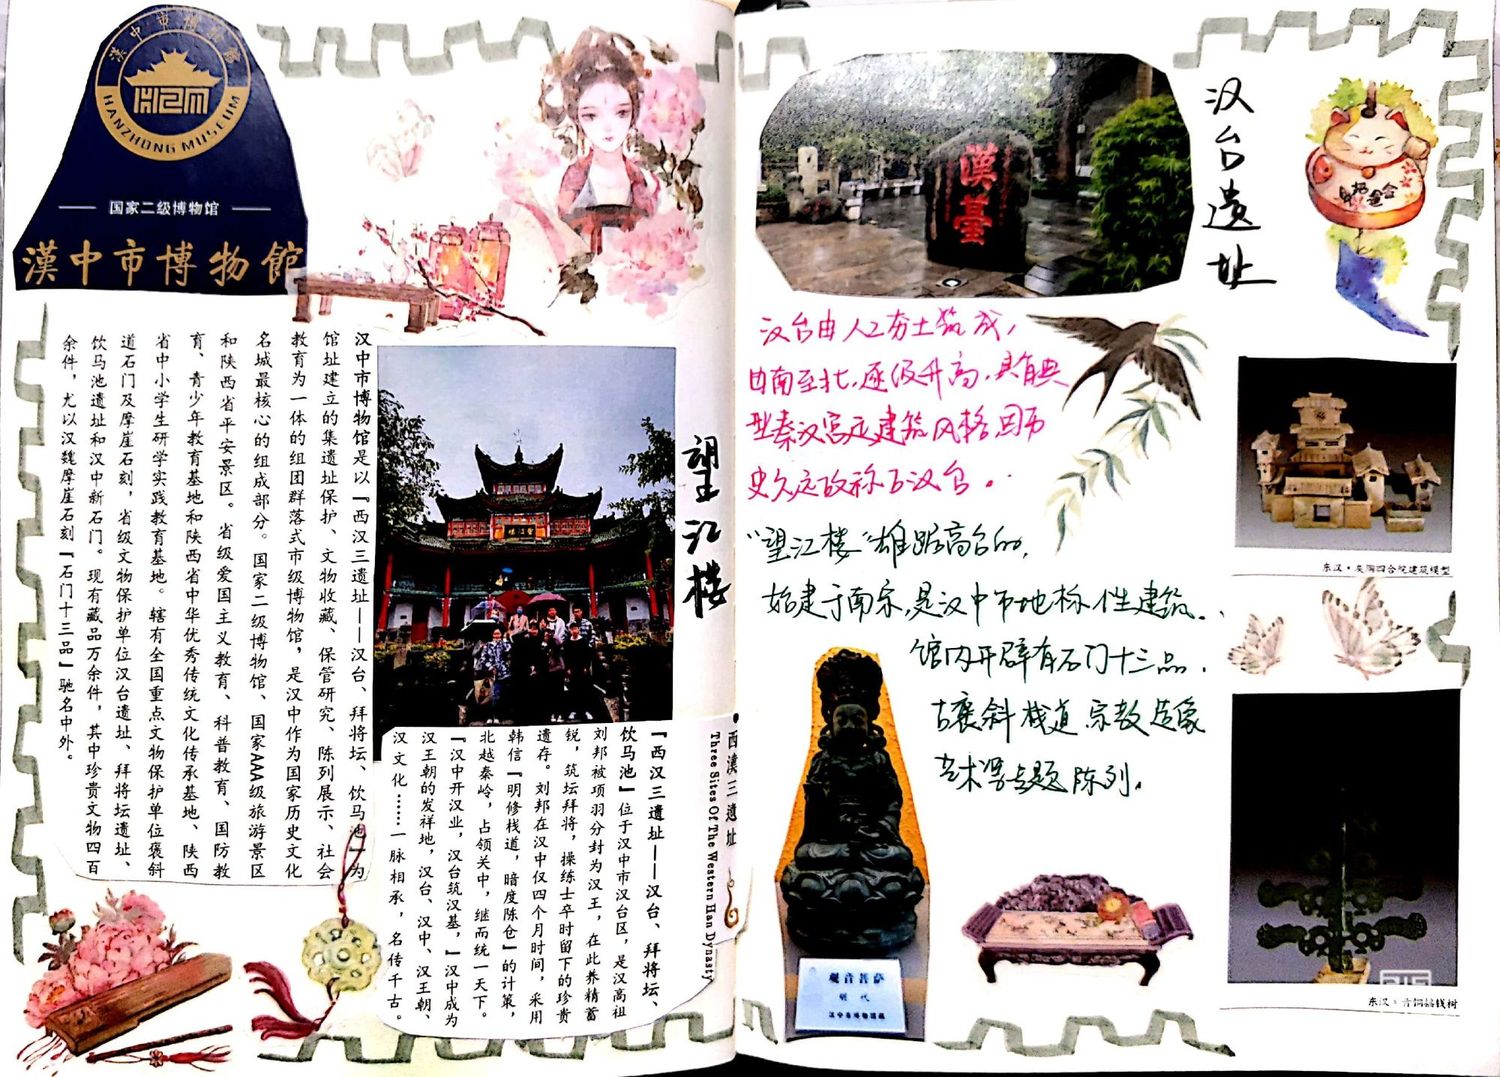 漢中市博物館
HANZHONG MUSEUM
国家二级博物馆
漢中市博物館
汉中市博物馆是以『西汉三遗址——汉台、拜将坛、饮马池』为
馆址建立的集遗址保护、文物收藏、保管研究、陈列展示、社会
教育为一体的组团群落式市级博物馆，是汉中作为国家历史文化
名城最核心的组成部分。国家二级博物馆、国家AAA级旅游景区
和陕西省平安景区。省级爱国主义教育、科普教育、国防教
育、青少年教育基地和陕西省中华优秀传统文化传承基地、陕西
省中小学生研学实践教育基地。辖有全国重点文物保护单位褒斜
道石门及摩崖石刻，省级文物保护单位汉台遗址、拜将坛遗址、
饮马池遗址和汉中新石门。现有藏品万余件，其中珍贵文物四百
余件，尤以汉魏摩崖石刻『石门十三品』驰名中外。
望江楼
西漢三遗址
Three Sites Of The Western Han Dynasty
『西汉三遗址——汉台、拜将坛、
饮马池』位于汉中市汉台区，是汉高祖
刘邦被项羽分封为汉王，在此养精蓄
锐，筑坛拜将，操练士卒时留下的珍贵
遗存。刘邦在汉中仅四个月时间，采用
韩信『明修栈道，暗度陈仓』的计策，
北越秦岭，占领关中，继而统一天下。
『汉中开汉业，汉台筑汉基。』汉中成为
汉王朝的发祥地，汉台、汉中、汉王朝、
汉文化……一脉相承，名传千古。
漢臺
汉台遗址
招金
汉台由人工夯土筑成，
由南至北，逐级升高，具有典
型秦汉宫廷建筑风格因历
史久远故称古汉台。
"望江楼"雄踞高台的，
始建于南宋，是汉中市地标性建筑.
馆内开辟有石门十三品，
古褒斜栈道 宗教造像
艺术等专题陈列。
东汉·灰陶四合院建筑模型
观音菩萨
明 代
汉中市博物馆藏
东汉·青铜摇钱树